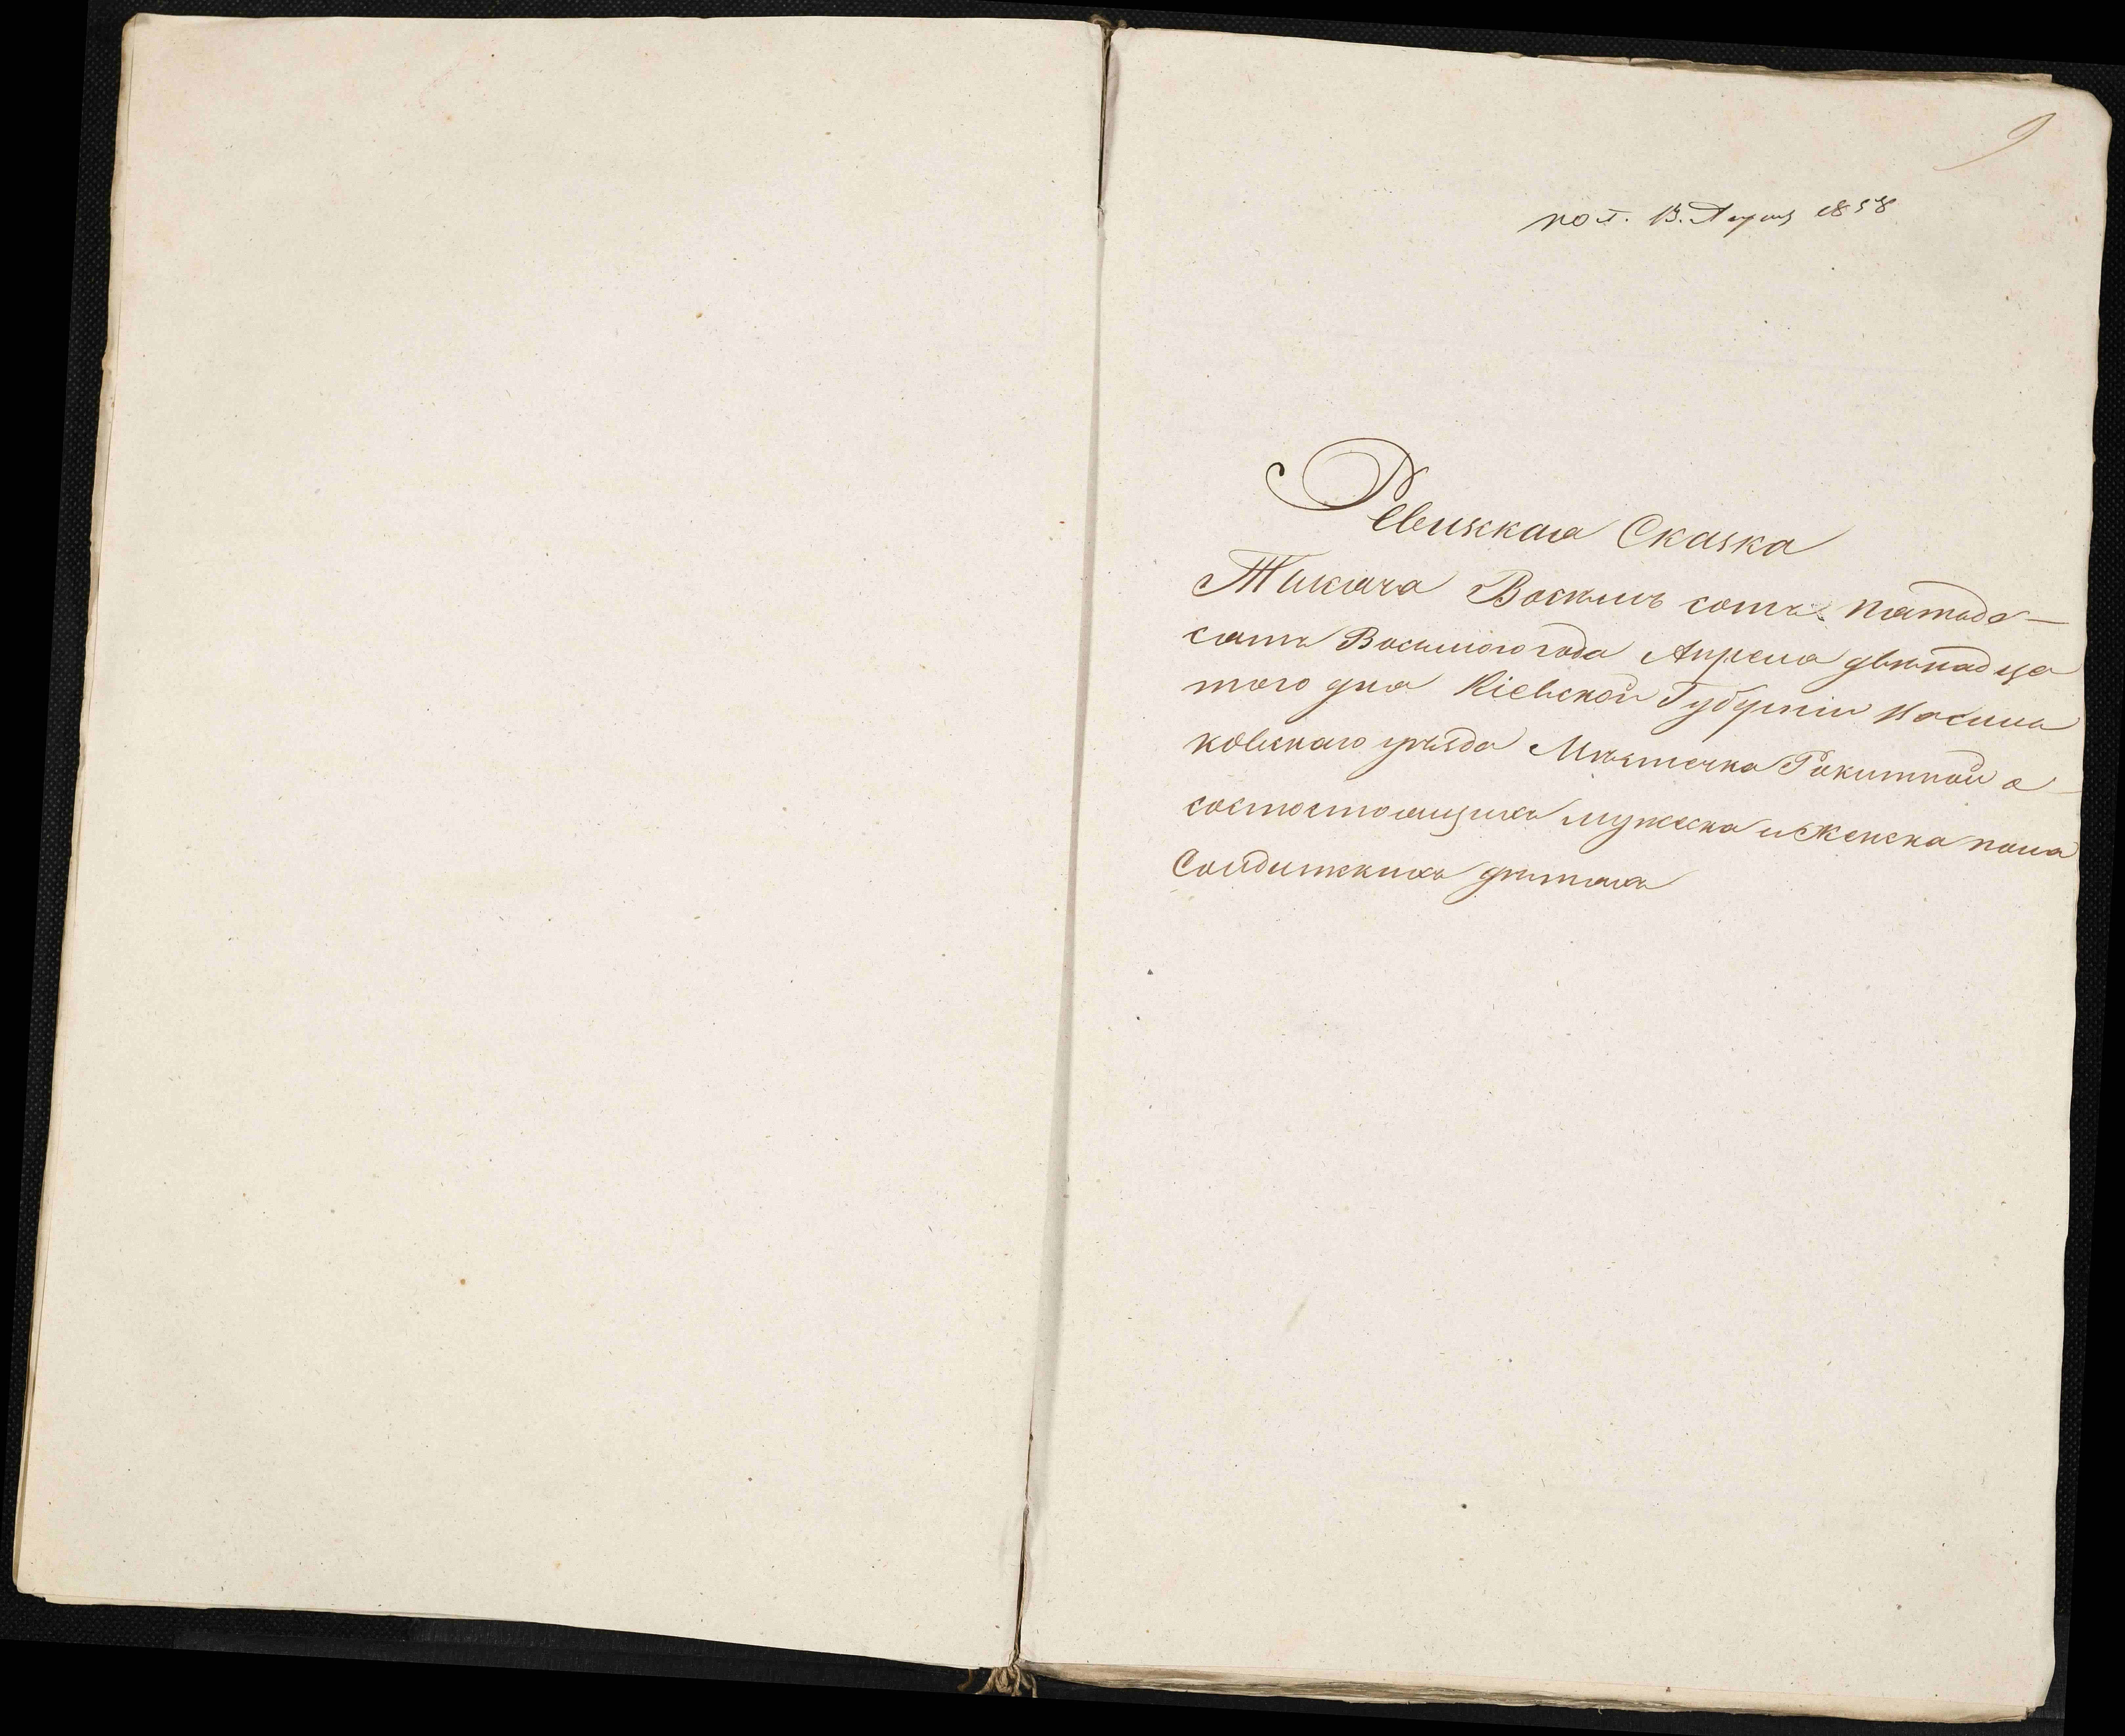 9
пол. 13. Апреля 1858
Ревизкая Сказка
Тисяча Восемь сотъ пятьде-
сятъ Восьмого года Апреля двѣнадца
того дня Кіевской Губерніи Василь
ковскаго уѣзда Мѣстечка Ракитной о
состостоящихъ мужеска и Женска пола
Солдатскихъ дѣтяхъ